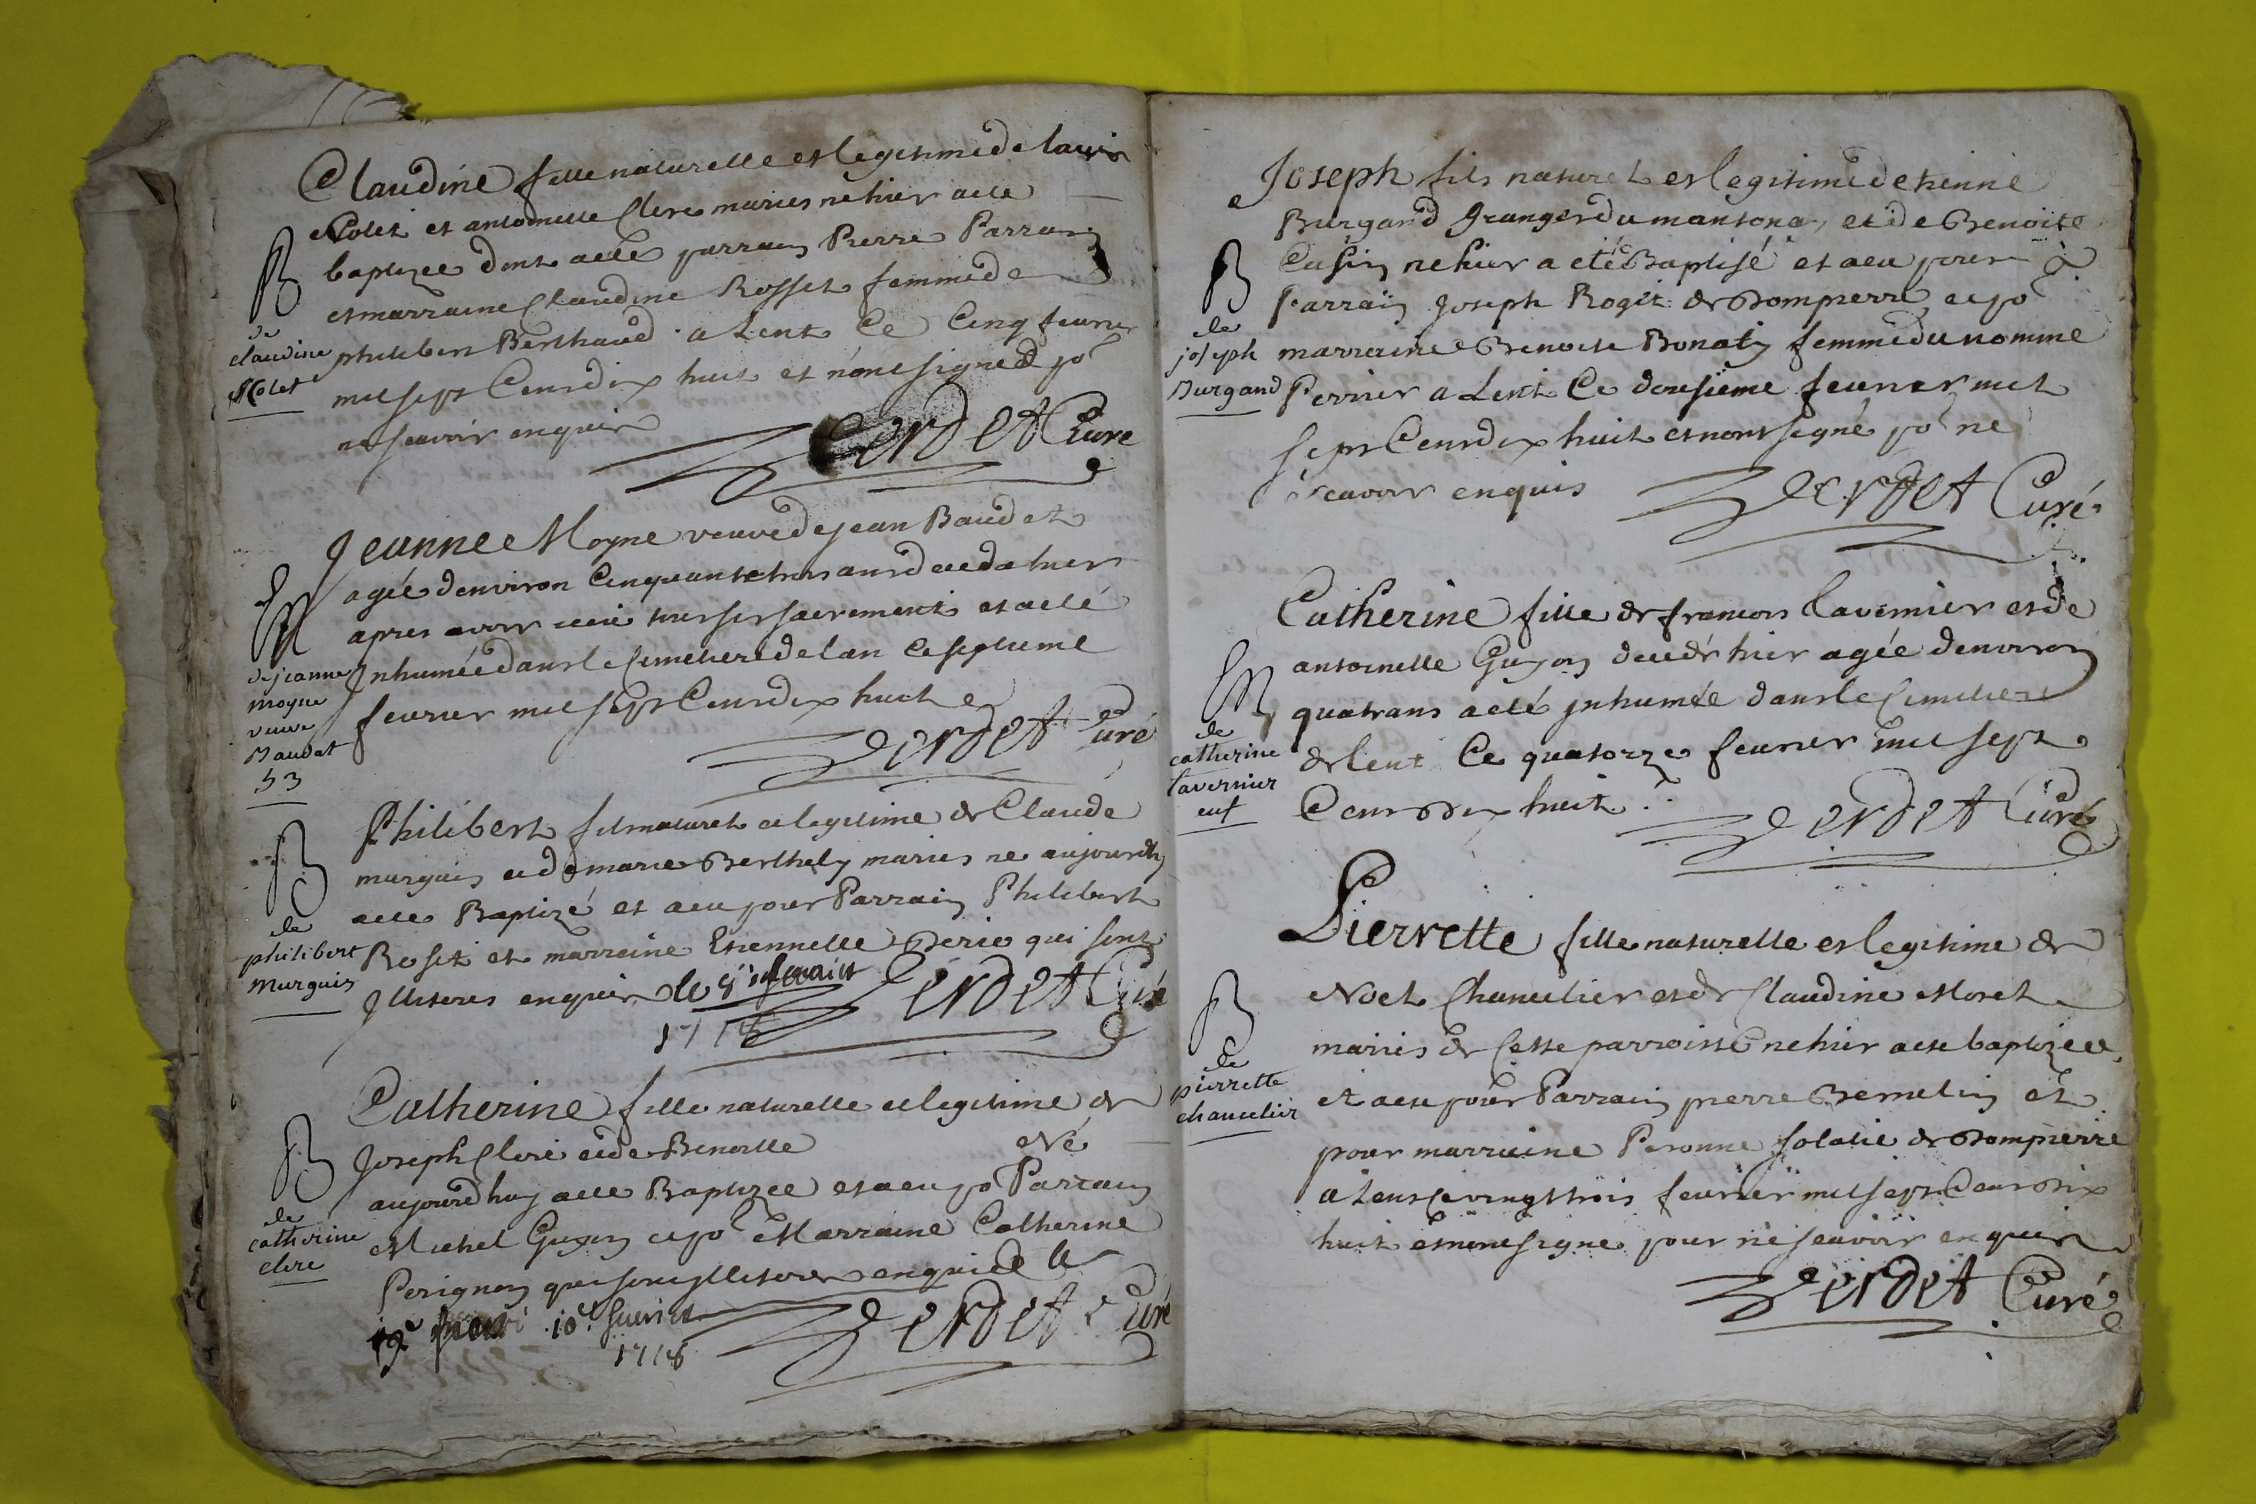 Claudine fille naturelle et legitime de
Nolet et antoinette Clerc maries ne hier a ete
baptizee dont a ete parrain Pierre Parrain
et marraine Claudine Rosset femme de
philibert Berthaud a Lent Ce Cinq feurier
mil sept Cent dix huit et n'ont signe po^r
ne scavoir enquis
Verdet Curé
B
de
claudine
Nolet
Jeanne Moyne veuve de jean Baudet
agée denviron Cinquante trois ans decedee hier
apres avoir receu tous ses sacrements et a eté
Inhumée dans le Cimetiere de lan Ce septieme
feurier mil sept Cent dix huit
Verdet Curé
M
de jeanne
moyne
veuve
Baudat
53
Philibert fils naturel et legitime de Claude
murguis et de marie Berthely maries ne aujourdhy
a ete Baptizé et a eu pour Parrain Philibert
Roset et marraine Etiennette qui sont
Illiteres enquis le feurier
1718
Verdet Curé
B
de
philibert
Murguis
Catherine fille naturelle et legitime de
Joseph Clerc et de Benoitte Né
aujourd huy a ete Baptizee et a eu po^r Parrain
Michel Guyon et po^r Marraine Catherine
Perignon qui sont Illiteres enquis le
10^e feurier
1718
Verdet Curé
B
de
catherine
clerc
Joseph fils naturel et legitime detienne
Burgand granger du et de Benoite
Cusin ne hier a eté Baptisé et a eu pour
Parrain Joseph Rogit de Dompierre et po^r
marraine Benoite Bonaty femme du nomme
Perrier a Lent Ce dousieme feurier mil
sept Cent dix huit et n'ont signé po^r ne
sçavoir enquis
Verdet Curé
B
de
joseph
Burgand
Catherine fille de francois tavernier et de
antoinette Guyon decedé hier agée denviron
quatr ans a eté inhumée dans le Cimetiere
de lent Ce quatorze feurier mil sept
Cent dix huit
Verdet Curé
M
de
catherine
tavernier
enf
Pierrette fille naturelle et legitime de
Noel Chancelier et de Claudine Moret
mariés de Cette parroisse ne hier a ete baptizee
et a eu pour Parrain pierre Bernelin et
pour marraine Peronne folatie de Dompierre
a Lent Ce vingt trois feurier mil sept Cent dix
huit et n'ont signe pour ne scavoir enquis
Verdet Curé
B
de
pierrette
chancelier